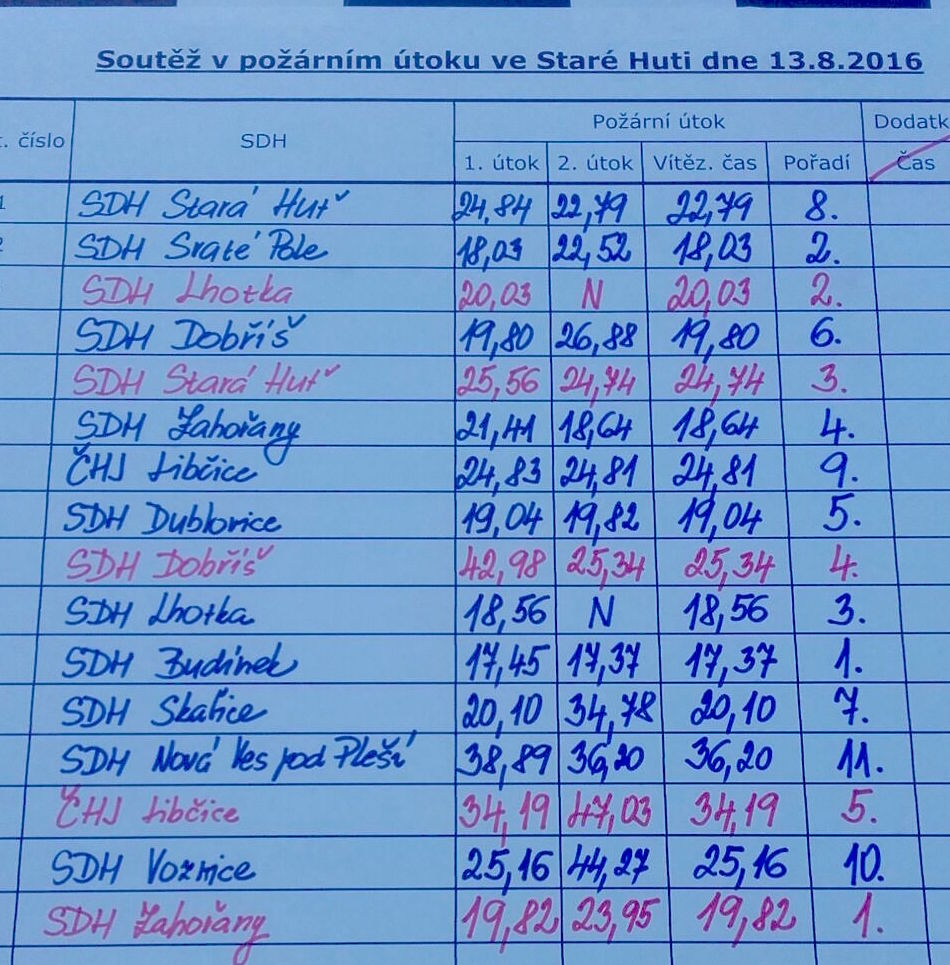 Soutěž v požárním útoku ve Staré Huti dne 13.8.2016
Požární útok Dodatk
t. číslo SDH
1. útok 2. útok Vítěz. čas Pořadí Čas
1 SDH Stará Huť 24,84 22,79 22,79 8.
2 SDH Svaté Pole 18,03 22,52 18,03 2.
SDH Lhotka 20,03 N 20,03 2.
SDH Dobříš 19,80 26,88 19,80 6.
SDH Stará Huť 25,56 24,74 24,74 3.
SDH Zahořany 21,41 18,64 18,64 4.
ČHJ Libčice 24,83 24,81 24,81 9.
SDH Dublovice 19,04 19,82 19,04 5.
SDH Dobříš 42,98 25,34 25,34 4.
SDH Lhotka 18,56 N 18,56 3.
SDH Budínek 17,45 17,37 17,37 1.
SDH Skalice 20,10 34,78 20,10 7.
SDH Nová Ves pod Pleší 38,89 36,20 36,20 11.
ČHJ Libčice 34,19 47,03 34,19 5.
SDH Voznice 25,16 44,27 25,16 10.
SDH Zahořany 19,82 23,95 19,82 1.